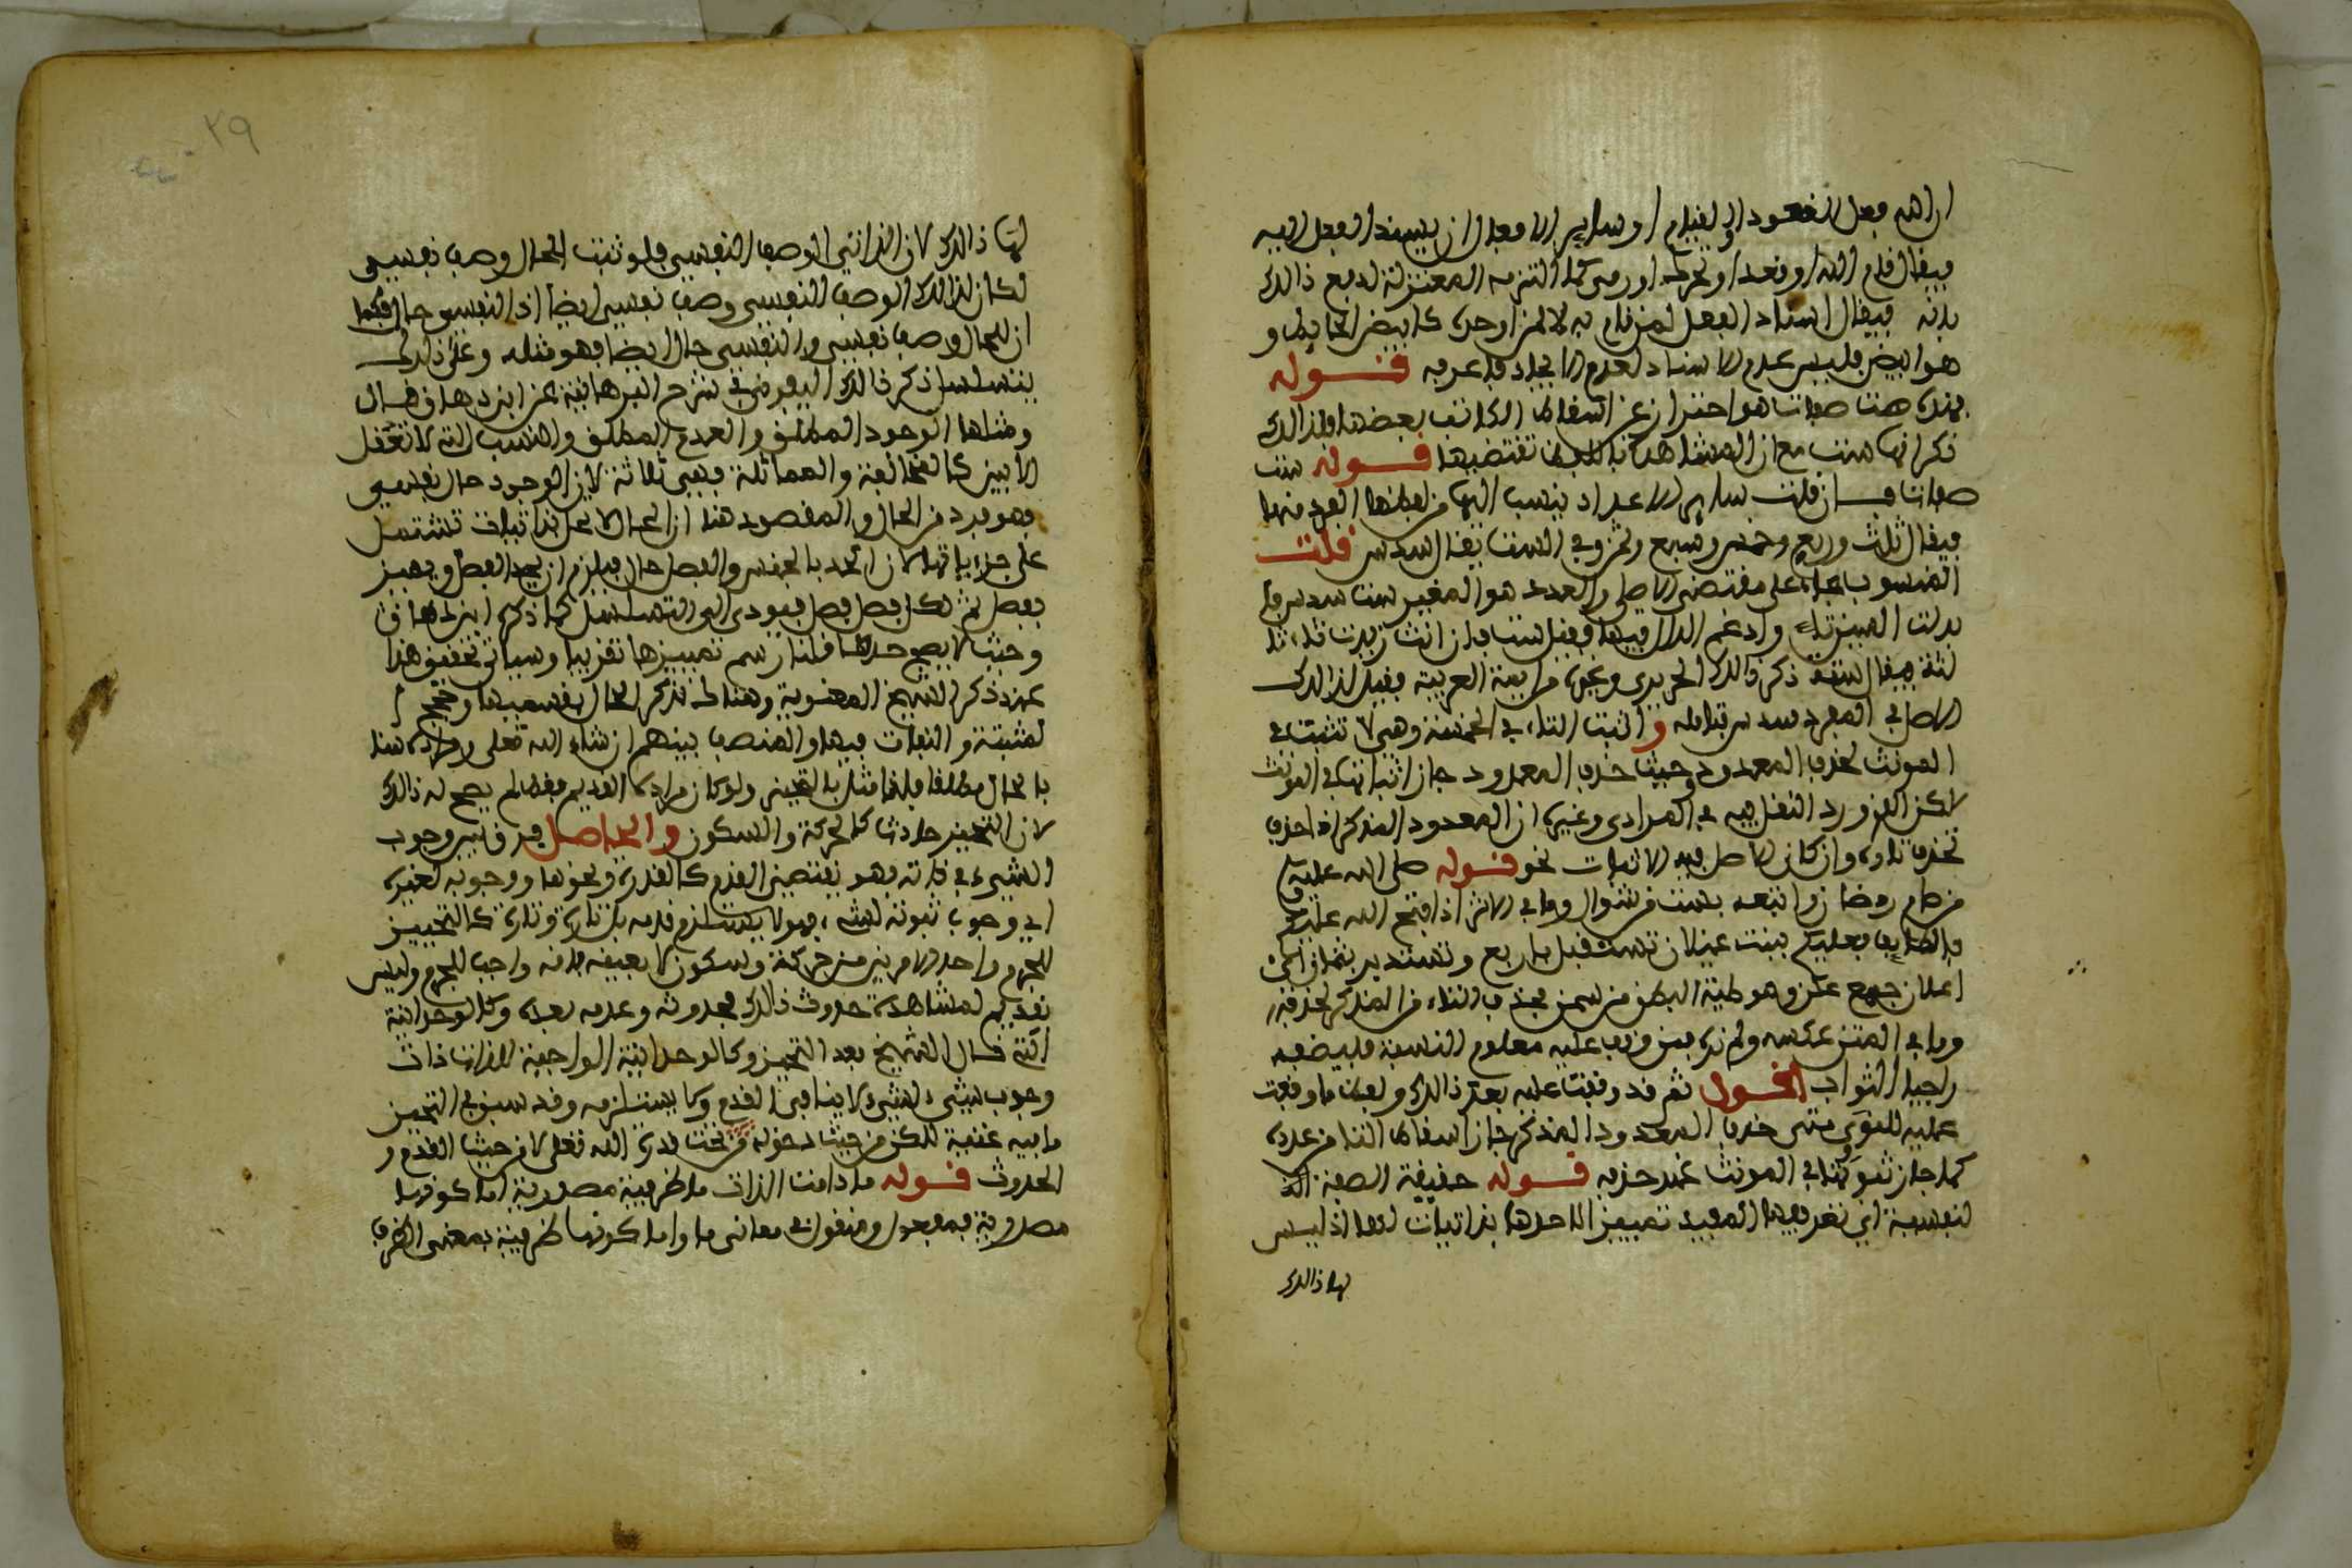 ان الله فعل القعود او القيام او ساير الافعال ان يسند الفعل اليه
فيقال قام الله او قعد او تحرك او رمى كما التزمه المعتزلة لدفع ذالك
بانه فيقال اسناد الفعل لمن قام به لا لمن اوجده كابيض الحايط و
هو ابيض فليس عدم الاسناد لعدم الايجاد فاعرفه قوله
فهذه ست صفات هو احتراز عن اسقاط الكاتب بعضها ولذالك
ذكر انها ست مع ان المشاهدة تقتضيها قوله ست
صفات فان قلت ساير الاعداد ينسب اليها من لفظها المفرد منها
فيقال ثلث وربع وخمس وسبع وثمن وفي الست يقال السدس قلت
المنسوب جاء على مقتضى الاصل والعدد هو المغير ست سدس فا
بدلت السين تاء وادغم الدال فيها فقيل ست فان انث زيدت تاء
ستة فيقال ستة ذكر ذالك الحريري وغيره من ايمة العربية فقيل لذالك
الاصل في المفرد سدس تبدله واثبت التاء في الخمسة وهي لا تثبت في
المونث لحذف المعدود وحيث حذف المعدود جاز اثباتها في المونث
لاكن الذي ورد النقل فيه في المرادي وغيره ان المعدود المذكر اذا حذف
تحذف تاوه وان كان الاصل فيه الاثبات نحو قوله صلى الله عليه
من صام رمضان واتبعه بست من شوال وما في الاثر اذا فتح الله عليكم
بالطايف فعليكم ببنت غيلان تستقبل باربع وتستدبر بثمان اي
اعكان جمع عكن وهو طية البطن من سمن فحذف التاء من المذكر لحذفه
وما في المتن عكسه ولم نره فمن وقف عليه معلوم النسبة فليضعه
راجيا الثواب اقول ثم قد وقفت عليه بعد ذالك ولفظ ما وقفت
عليه للنووي متى حذف المعدود المذكر جاز اسقاط التا من عدده
كما جاز ثبوتها في المونث عند حذفه قوله حقيقة الصفة
النفسية اي تعريفها المفيد تمييزا لاحدها بذاتيات لها اذ ليس
لها ذالك
٢٩
لها ذالك لان الذاتي الوصف النفسي فلو ثبت للحال وصف نفسي
لكان لذالك الوصف النفسي وصف نفسي ايضا اذ النفسي حال فكما
ان للحال وصف نفسي والنفسي حال ايضا فهو مثله وعلى ذالك
يتسلسل ذكر ذالك اليفرني في شرح البرهانية عن ابن دهاق قال
ومثلها الوجود المطلق والعدم المطلق والنسب التي لا تعقل
الا بين كالمخالفة والمماثلة فهي ثلاثة لان الوجود حال نفسي
فهو فرد من الحال والمقصود هنا ان الحال لا تحد بذاتيات تشتمل
على جزءياتها لان الحد بالجنس والفصل حال فيلزم ان يحد الفصل ويميز
بفصل ثم لكل فصل فصل فيودي الى التسلسل كما ذكره ابن دهاق
وحيث لا يصح حدها قلنا رسم تمييزها تقريبا وسياتي تحقيق هذا
عند ذكر الشيخ المعنوية وهناك نذكر الحال بقسميها وحجج ا
لمثبتة والنفات فيها والمنصف بينهم ان شاء الله تعلى ومراده هنا
بالحال مطلقا فلذا مثل بالتحيز ولو كان مراده القديم فقط لم يصح له ذالك
لان التحيز حادث كالحركة والسكون والحاصل فرق بين وجوب
الشيء في ذاته فهو يقتضي القدم كالقدرة ونحوها ووجوبه لغيره
اي وجوب ثبوته لشيء فهو لا يستلزم قدمه بل تارة وتارة كالتحيز
للجرم واحد الامرين من حركة وسكون لا بعينه فانه واجب للجرم وليس
بقديم لمشاهدة حدوث ذالك فحدوثه وعدمه بعده وكالوحدانية
التي قال الشيخ بعد التحيز وكالوحدانية الواجبة للذات ذات
وجوب شيء لشيء لا ينافي القدم ولا يستلزمه وقد سبق في التحيز
ما فيه غنية للكن من حيث دخوله تحت قدرة الله تعلى لا من حيث القدم و
الحدوث قوله ما دامت الذات ما ظرفية مصدرية اما كونها
مصدرية فمعجول ومنقول في معاني ما واما كونها ظرفية بمعنى الظرف